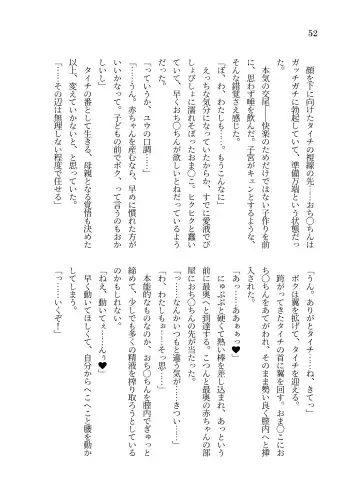 52
顔を下に向けたタイチの複線の先――おち〇ちんは
ガッチガチに勃起していて、準備万端という状態だっ
た。
本気の交尾――快楽のためだけではない子作りを前
に、思わず唾を飲んだ。子宮がキュンとするような、
そんな錯覚さえ感じた。
「ぼ、わ、わたしも……。もうこんなに」
えっちな気分になっていたからか、すでに愛液でび
しょびしょに濡れそぼったおま〇こ。ヒクヒクと蠢い
ていて、早くおち〇ちんが欲しいとねだっているよう
だった。
「っていうか、ユウの口調……」
「……うん。赤ちゃんを産むなら、早めに慣れた方が
いいかなって。子どもの前でボク、って言うのもおか
しいし」
タイチの番として生きる、母親となる覚悟も決めた
以上、変えていかないと、と思っていた。
「……その辺は無理しない程度で任せる」
「うん。ありがとタイチ。……ね、きて。っ」
ボクは翼を拡げて、タイチを迎える。
跨がってきたタイチの首に翼を回す。おま〇こにお
ち〇ちんをあてがわれ、そのまま勢い良く膣内へと挿
入された。
「あっ……ああぁぁっ♥」
にゅぷぷと硬くて熱い棒を差し込まれ、あっという
間に最奥へと到達する。こつんと最奥の赤ちゃんの部
屋におち〇ちんの先が当たった。
「っ……なんかいつもと違う気が……きつい……」
「わ、わたしもぉ……そっ思……」
本能的なものなのか、おち〇ちんを膣内でぎゅっと
締めて、少しでも多くの精液を搾り取ろうとしている
のかもしれない。
「ねえ、動いてぇ……んぅ♥」
早く動いてほしくて、自分からへこへこと腰を動か
してしまう。
「……いくぞ！」